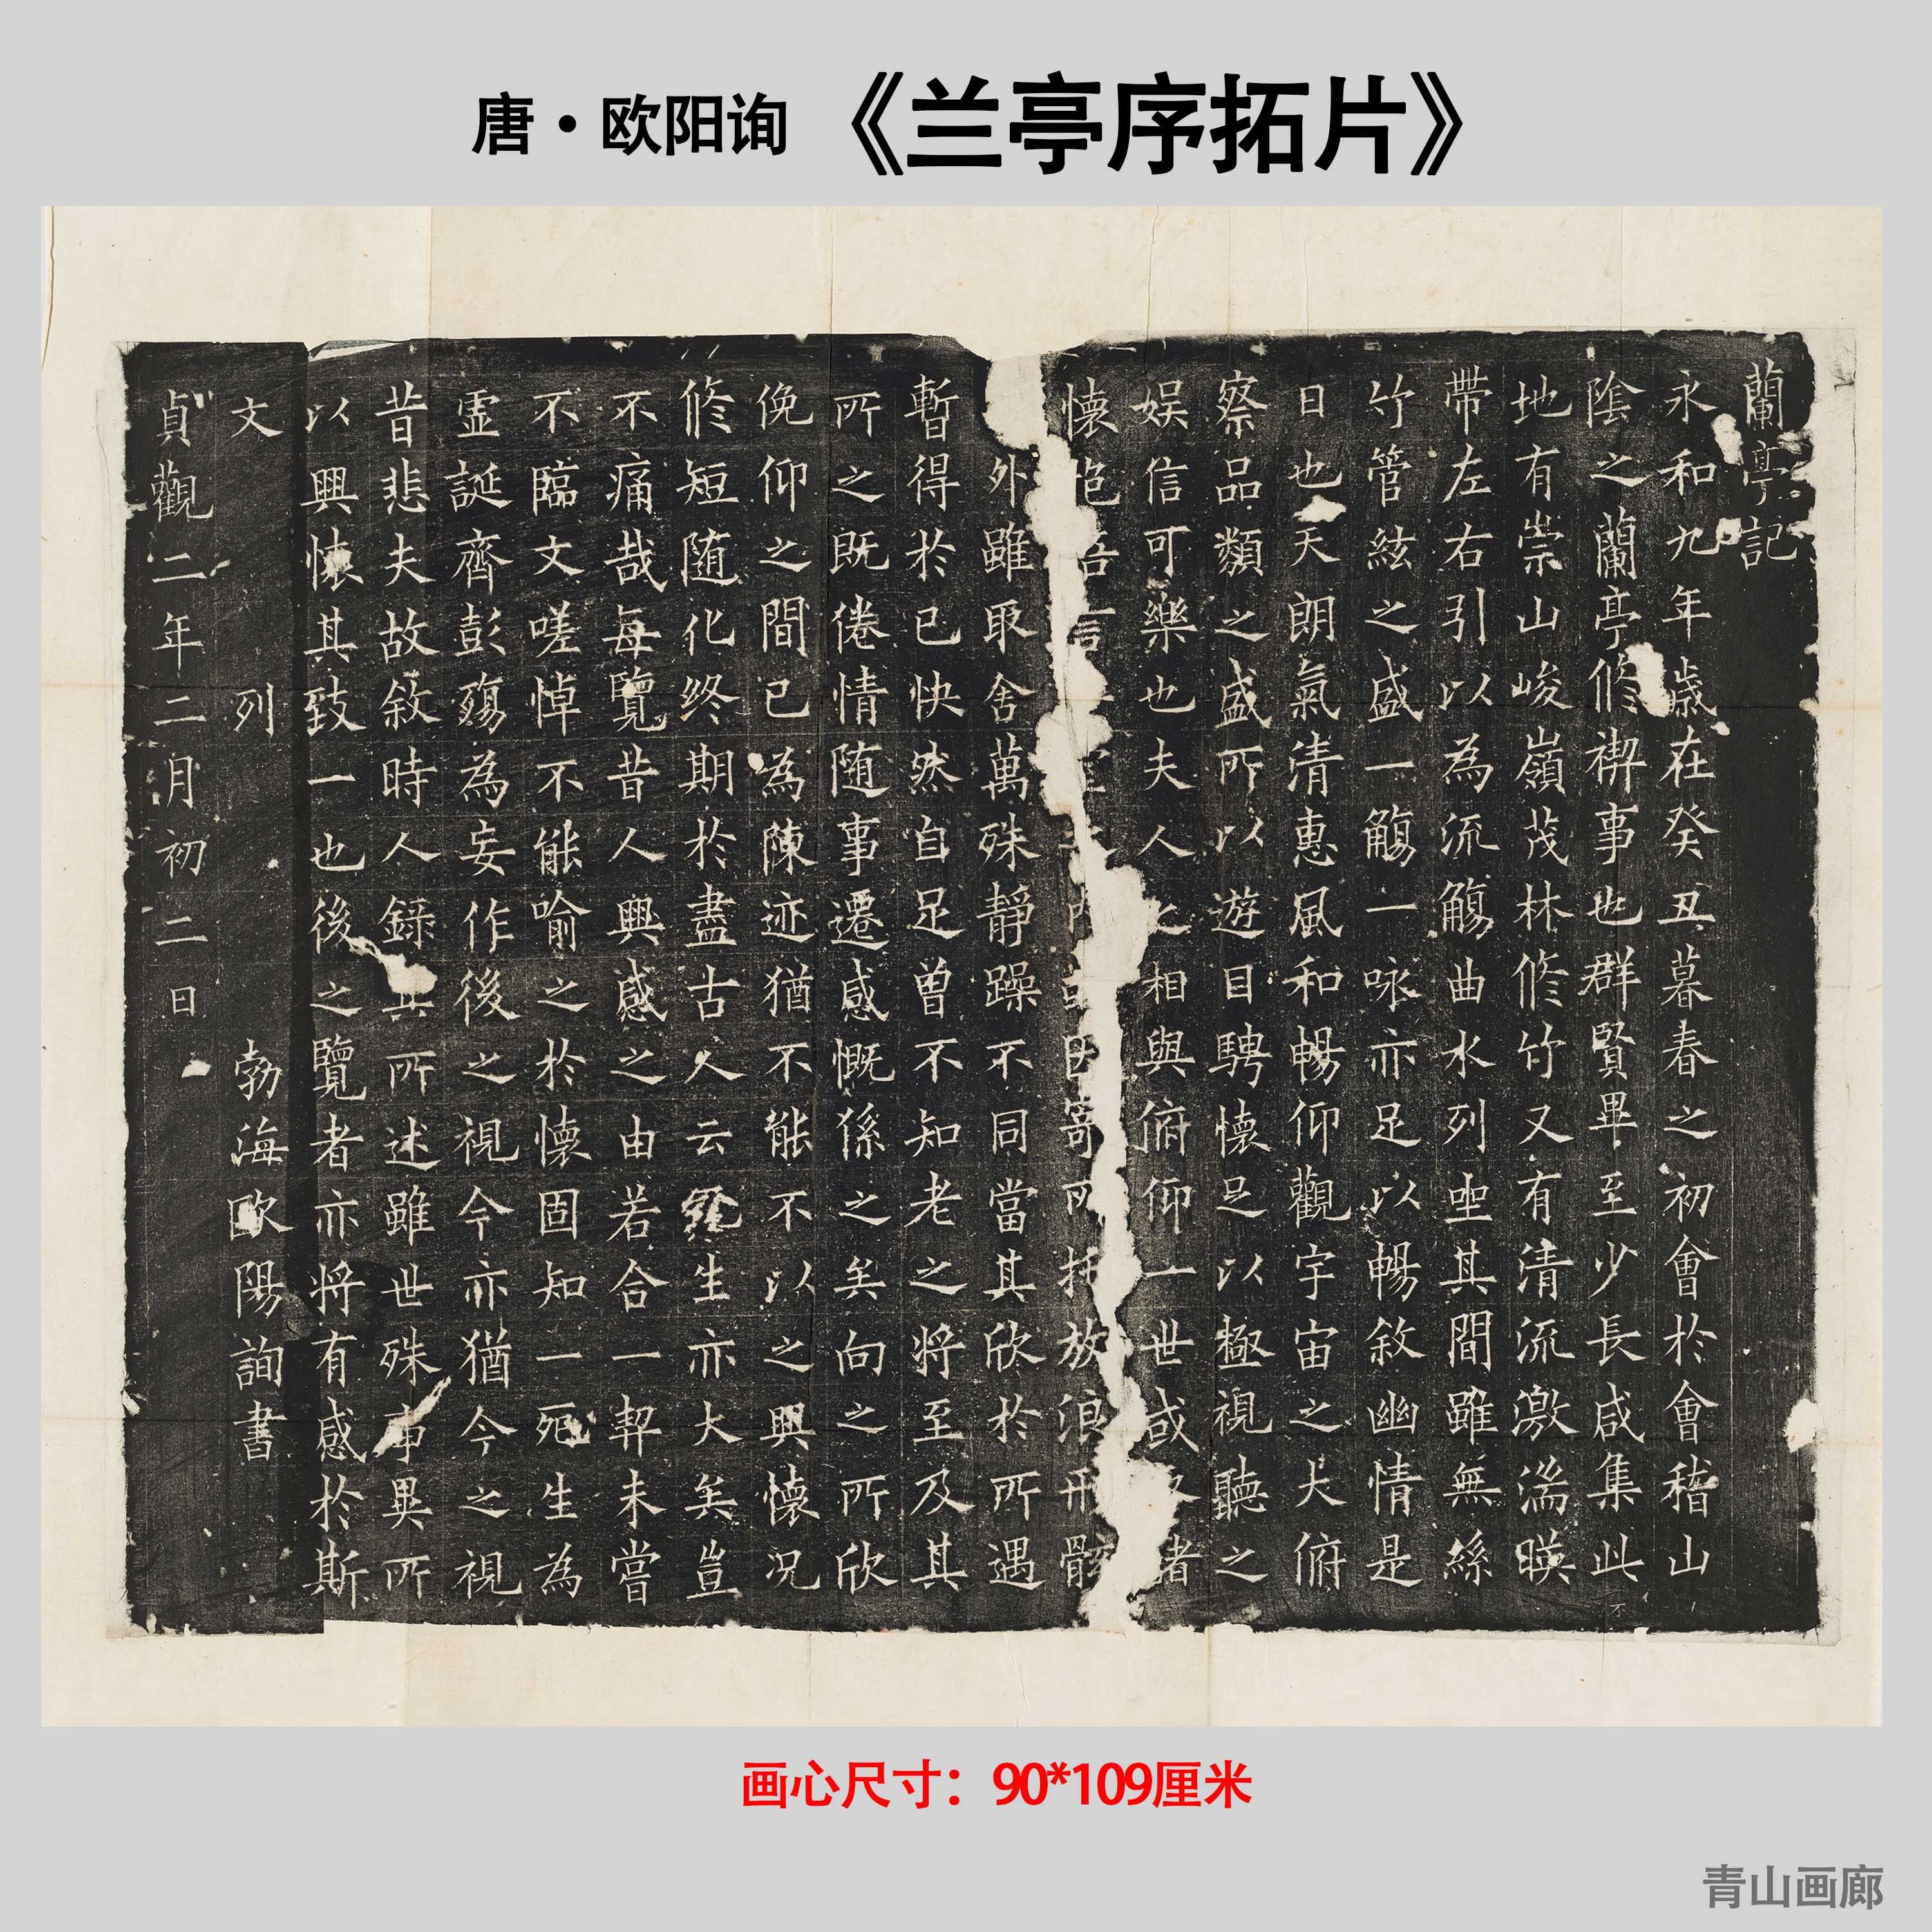 唐·欧阳询 《兰亭序拓片》
蘭亭記
永和九年歲在癸丑暮春之初會於會稽山
陰之蘭亭修禊事也群賢畢至少長咸集此
地有崇山峻嶺茂林修竹又有清流激湍暎
帶左右引以為流觴曲水列坐其間雖無絲
竹管絃之盛一觴一咏亦足以暢敘幽情是
日也天朗氣清惠風和暢仰觀宇宙之大俯
察品類之盛所以遊目騁懷足以極視聽之
娱信可樂也夫人之相與俯仰一世或諸
懷抱言因寄所托放浪形骸
外雖取舍萬殊靜躁不同當其欣於所遇
暫得於己快然自足曾不知老之將至及其
所之既倦情随事遷感慨係之矣向之所欣
俛仰之間已為陳迹猶不能不以之興懷況
修短随化终期於盡古人云死生亦大矣豈
不痛哉每覽昔人興感之由若合一契未嘗
不臨文嗟悼不能喻之於懷固知一死生為
虛誕齊彭殤為妄作後之視今亦猶今之視
昔悲夫故敘時人錄其所述雖世殊事異所
以興懷其致一也後之覽者亦将有感於斯
文 列 勃海欧陽詢書
貞觀二年二月初二日
画心尺寸：90*109厘米
青山画廊